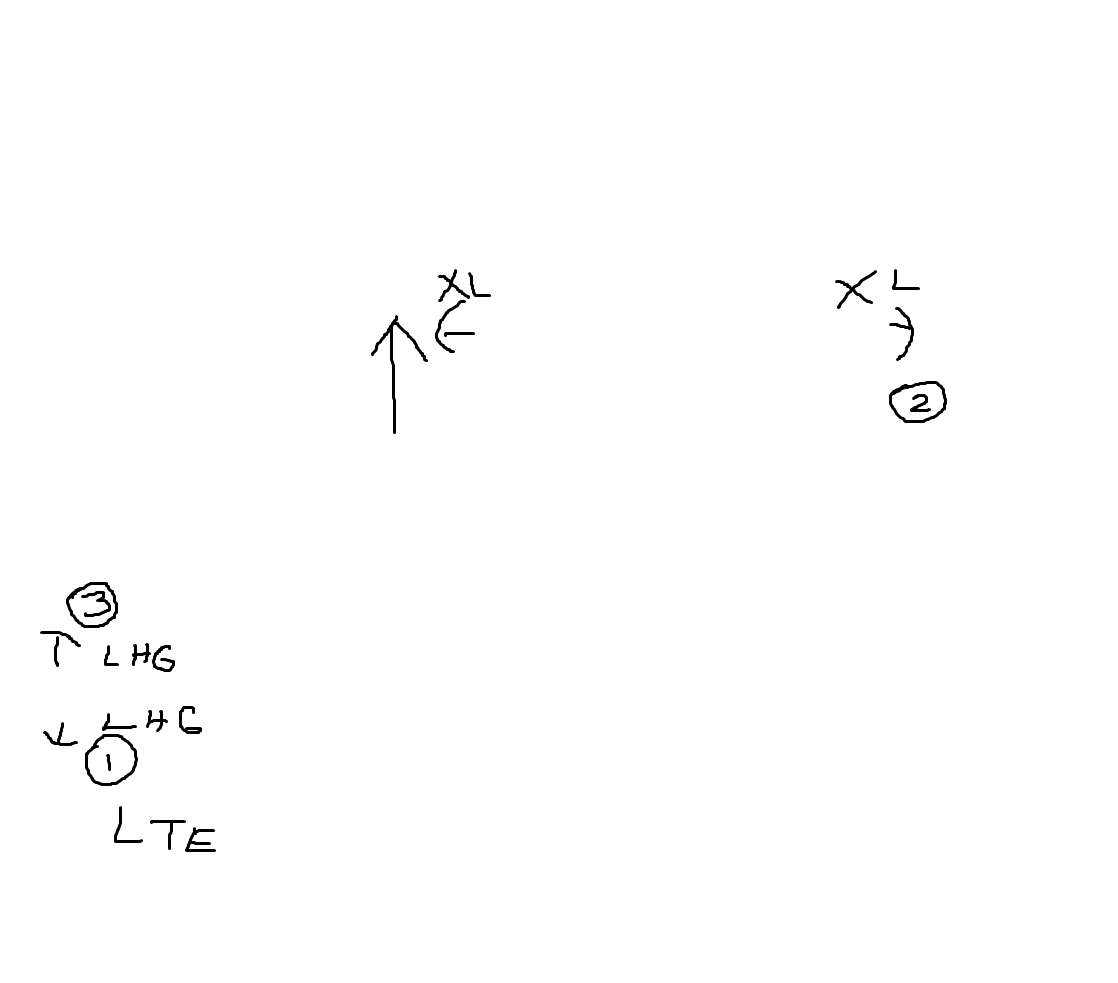 XL
XL
2
3
LHG
LHG
1
LTE